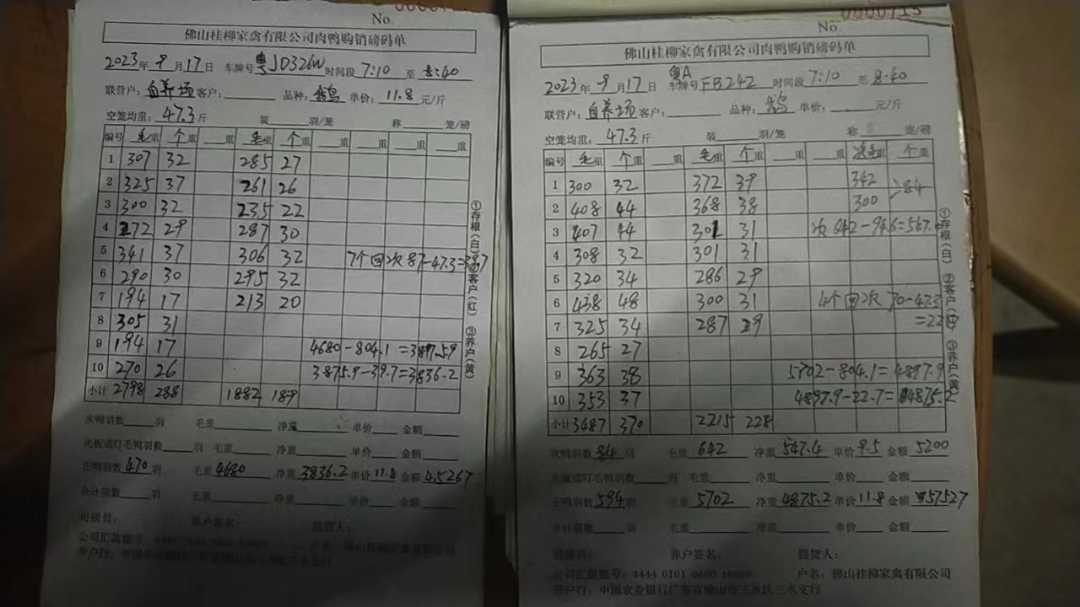 No.
佛山桂柳家禽有限公司肉鸭购销磅码单
2023年9月17日 车牌号粤JD326W时间段7:10至8:40
联营户:自养场客户: 品种: 单价:11.8元/斤
空笼均重:47.3斤 装 羽/笼 称 笼/磅
编号 毛重 个重 重 毛重 个重 重 重 重 重
1 307 32 285 27
2 325 37 261 26
3 300 32 235 22
4 272 29 287 30
5 341 37 306 32 7个回次87-47.3=39.7
6 290 30 295 32
7 194 17 213 20
8 305 31
9 194 17 4680-804.1=3897.59
10 270 26 3875.9-39.7=3836.2
小计 2798 288 1882 189
次鸭羽数 羽 毛重 净重 单价 金额
光板或盯毛鸭羽数 羽 毛重 净重 单价 金额
正鸭羽数470羽 毛重4680 净重3836.2单价11.8金额45267
合计羽数 羽 毛重 净重 单价 金额
司磅员: 养户签名: 提货人:
①存根(白)②客户(红)③养户(黄)
No.
0000713
佛山桂柳家禽有限公司肉鸭购销磅码单
2023年9月17日 车牌号粤A FB242 时间段7:10至8:40
联营户:自养场客户: 品种: 单价: 元/斤
空笼均重:47.3斤 装 羽/笼 称 笼/磅
编号 毛重 个重 重 毛重 个重 重 重 重 个重
1 300 32 372 39 342
2 408 44 368 38 300 >84
3 407 44 301 31 次642-94.6=567.4
4 308 32 301 31
5 320 34 286 29
6 438 48 300 31 4个回次70-47.3
7 325 34 287 29 =22.7
8 265 27
9 363 38 5702-804.1=4897.9
10 353 37 4897.9-22.7=4875.2
小计 3487 370 2215 228
次鸭羽数84羽 毛重642 净重547.4 单价9.5 金额5200
光板或盯毛鸭羽数 羽 毛重 净重 单价 金额
正鸭羽数594羽 毛重5702 净重4875.2 单价11.8 金额57527
合计羽数 羽 毛重 净重 单价 金额
司磅员: 养户签名: 提货人:
户名:佛山桂柳家禽有限公司
①存根(白)②客户(红)③养户(黄)